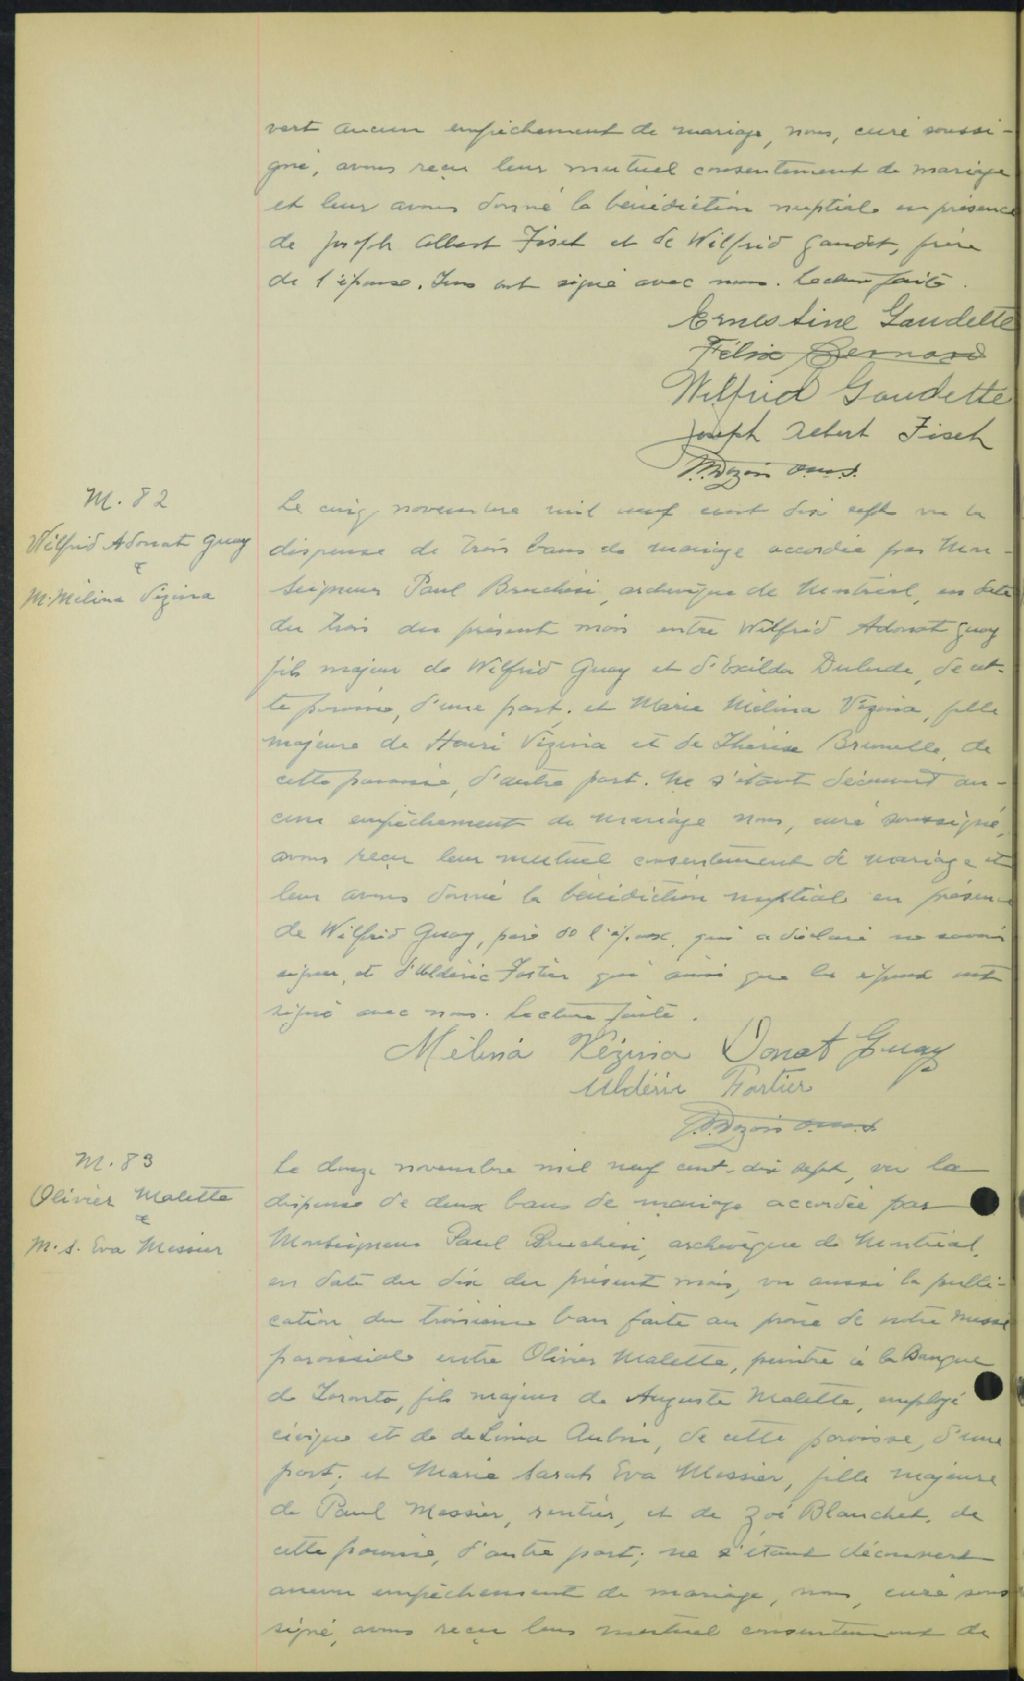 vert aucun empêchement de mariage, nous, curé soussi-
gné, avons reçu leur mutuel consentement de mariage
et leur avons donné la bénédiction nuptiale en présence
de Joseph Albert Fiset et de Wilfrid Gaudet, frère
de l'épouse. Tous ont signé avec nous. Lecture faite.
Ernestine Gaudette
Félix Bernard
Wilfrid Gaudette
Joseph Albert Fiset
M. 82
Wilfrid Adonat Guay
&
M. Mélina Vézina
Le cinq novembre mil neuf cent dix sept vu la
dispense de trois bans de mariage accordée par Mon-
seigneur Paul Bruchési, archevêque de Montréal, en date
du trois du présent mois entre Wilfrid Adonat Guay
fils majeur de Wilfrid Guay et d'Exilda Dulude, de cet-
te paroisse, d'une part; et Marie Mélina Vézina, fille
majeure de Henri Vézina et de Thérèse Brunelle, de
cette paroisse, d'autre part. Ne s'étant découvert au-
cun empêchement de mariage nous, curé soussigné,
avons reçu leur mutuel consentement de mariage et
leur avons donné la bénédiction nuptiale en présence
de Wilfrid Guay, père de l'époux, qui a déclaré ne savoir
signer, et d'Uldéric Fortier qui ainsi que les époux ont
signé avec nous. Lecture faite.
Mélina Vézina Donat Guay
Uldéric Fortier
M. 83
Olivier Malette
&
M. S. Eva Messier
Le douze novembre mil neuf cent-dix sept, vu la
dispense de deux bans de mariage accordée par
Monseigneur Paul Bruchési, archevêque de Montréal,
en date du dix du présent mois, vu aussi la publi-
cation du troisième ban faite au prône de notre messe
paroissiale entre Olivier Malette, peintre à la Banque
de Toronto, fils majeur de Auguste Malette, employé
civique et de deLima Aubin, de cette paroisse, d'une
part; et Marie Sarah Eva Messier, fille majeure
de Paul Messier, rentier, et de Zoé Blanchet, de
cette paroisse, d'autre part; ne s'étant découvert
aucun empêchement de mariage, nous, curé sous
signé, avons reçu leur mutuel consentement de